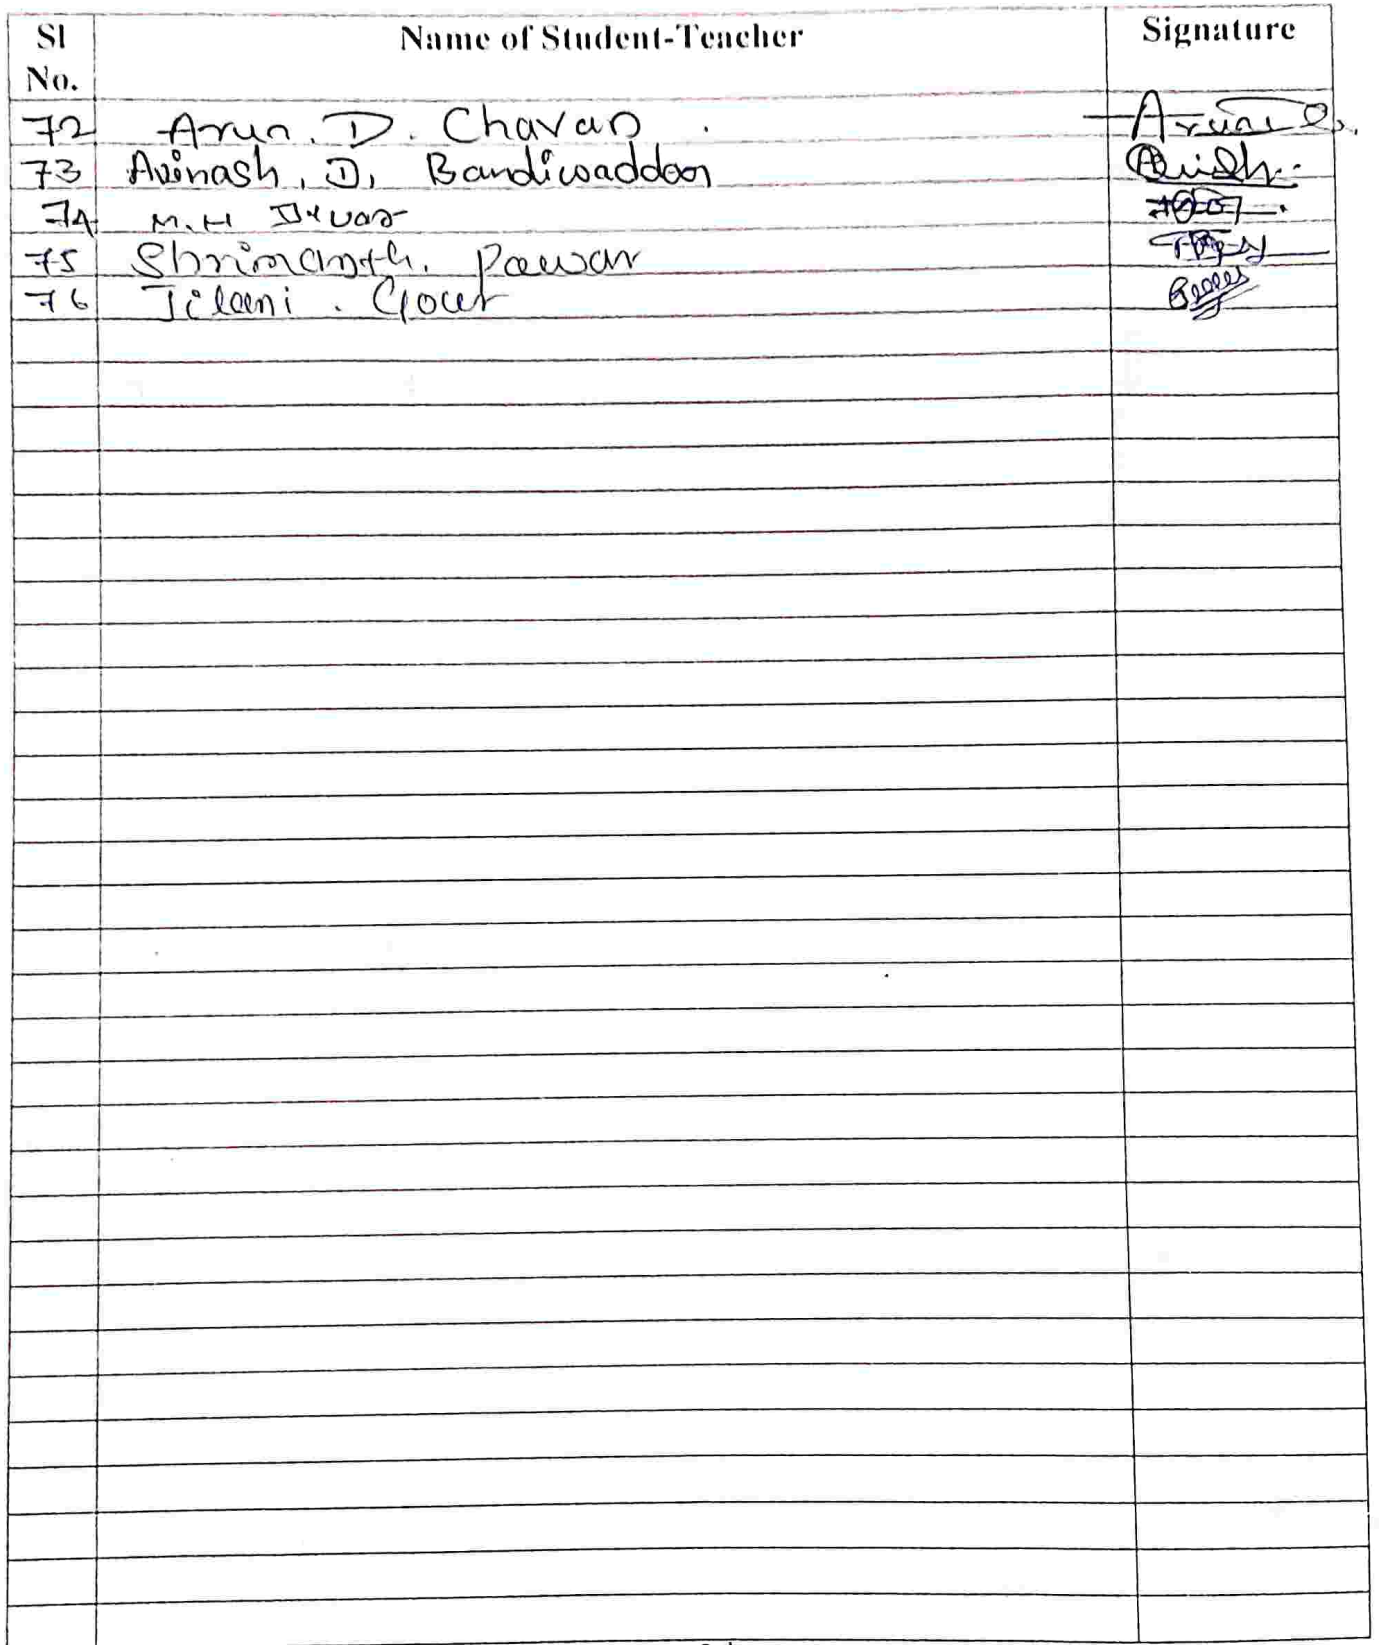 Sl No. Name of Student-Teacher Signature
72 Arun. D. Chavan.
73 Avinash. D. Bandiwaddar
74 M.H
75 Shrimanth. Pawar
76 Jilani. Gour